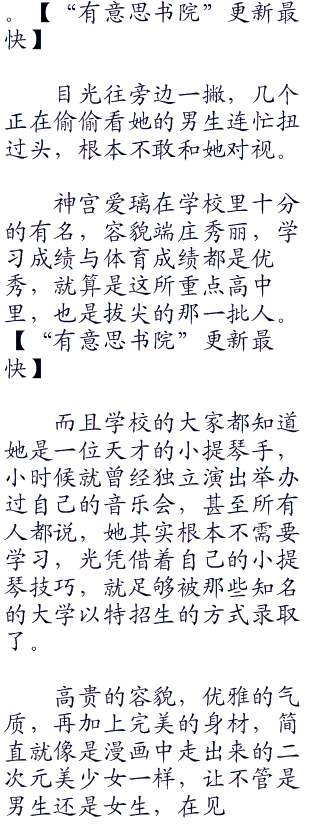 。【“有意思书院”更新最
快】
目光往旁边一撇，几个
正在偷偷看她的男生连忙扭
过头，根本不敢和她对视。
神宫爱璃在学校里十分
的有名，容貌端庄秀丽，学
习成绩与体育成绩都是优
秀，就算是这所重点高中
里，也是拔尖的那一批人。
【“有意思书院”更新最
快】
而且学校的大家都知道
她是一位天才的小提琴手，
小时候就曾经独立演出举办
过自己的音乐会，甚至所有
人都说，她其实根本不需要
学习，光凭借着自己的小提
琴技巧，就足够被那些知名
的大学以特招生的方式录取
了。
高贵的容貌，优雅的气
质，再加上完美的身材，简
直就像是漫画中走出来的二
次元美少女一样，让不管是
男生还是女生，在见